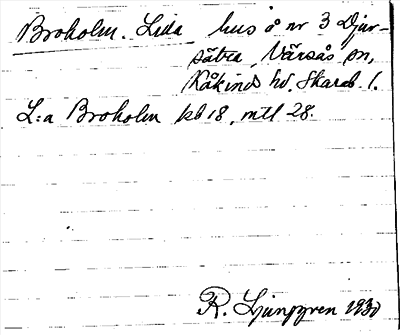 Broholm. Lida hus å nr 3 Djur-
sätra, Värsås sn,
Kåkinds hd. Skarab. l.
L:a Broholm kb 18, mtl 28.
R. Ljunggren 1930